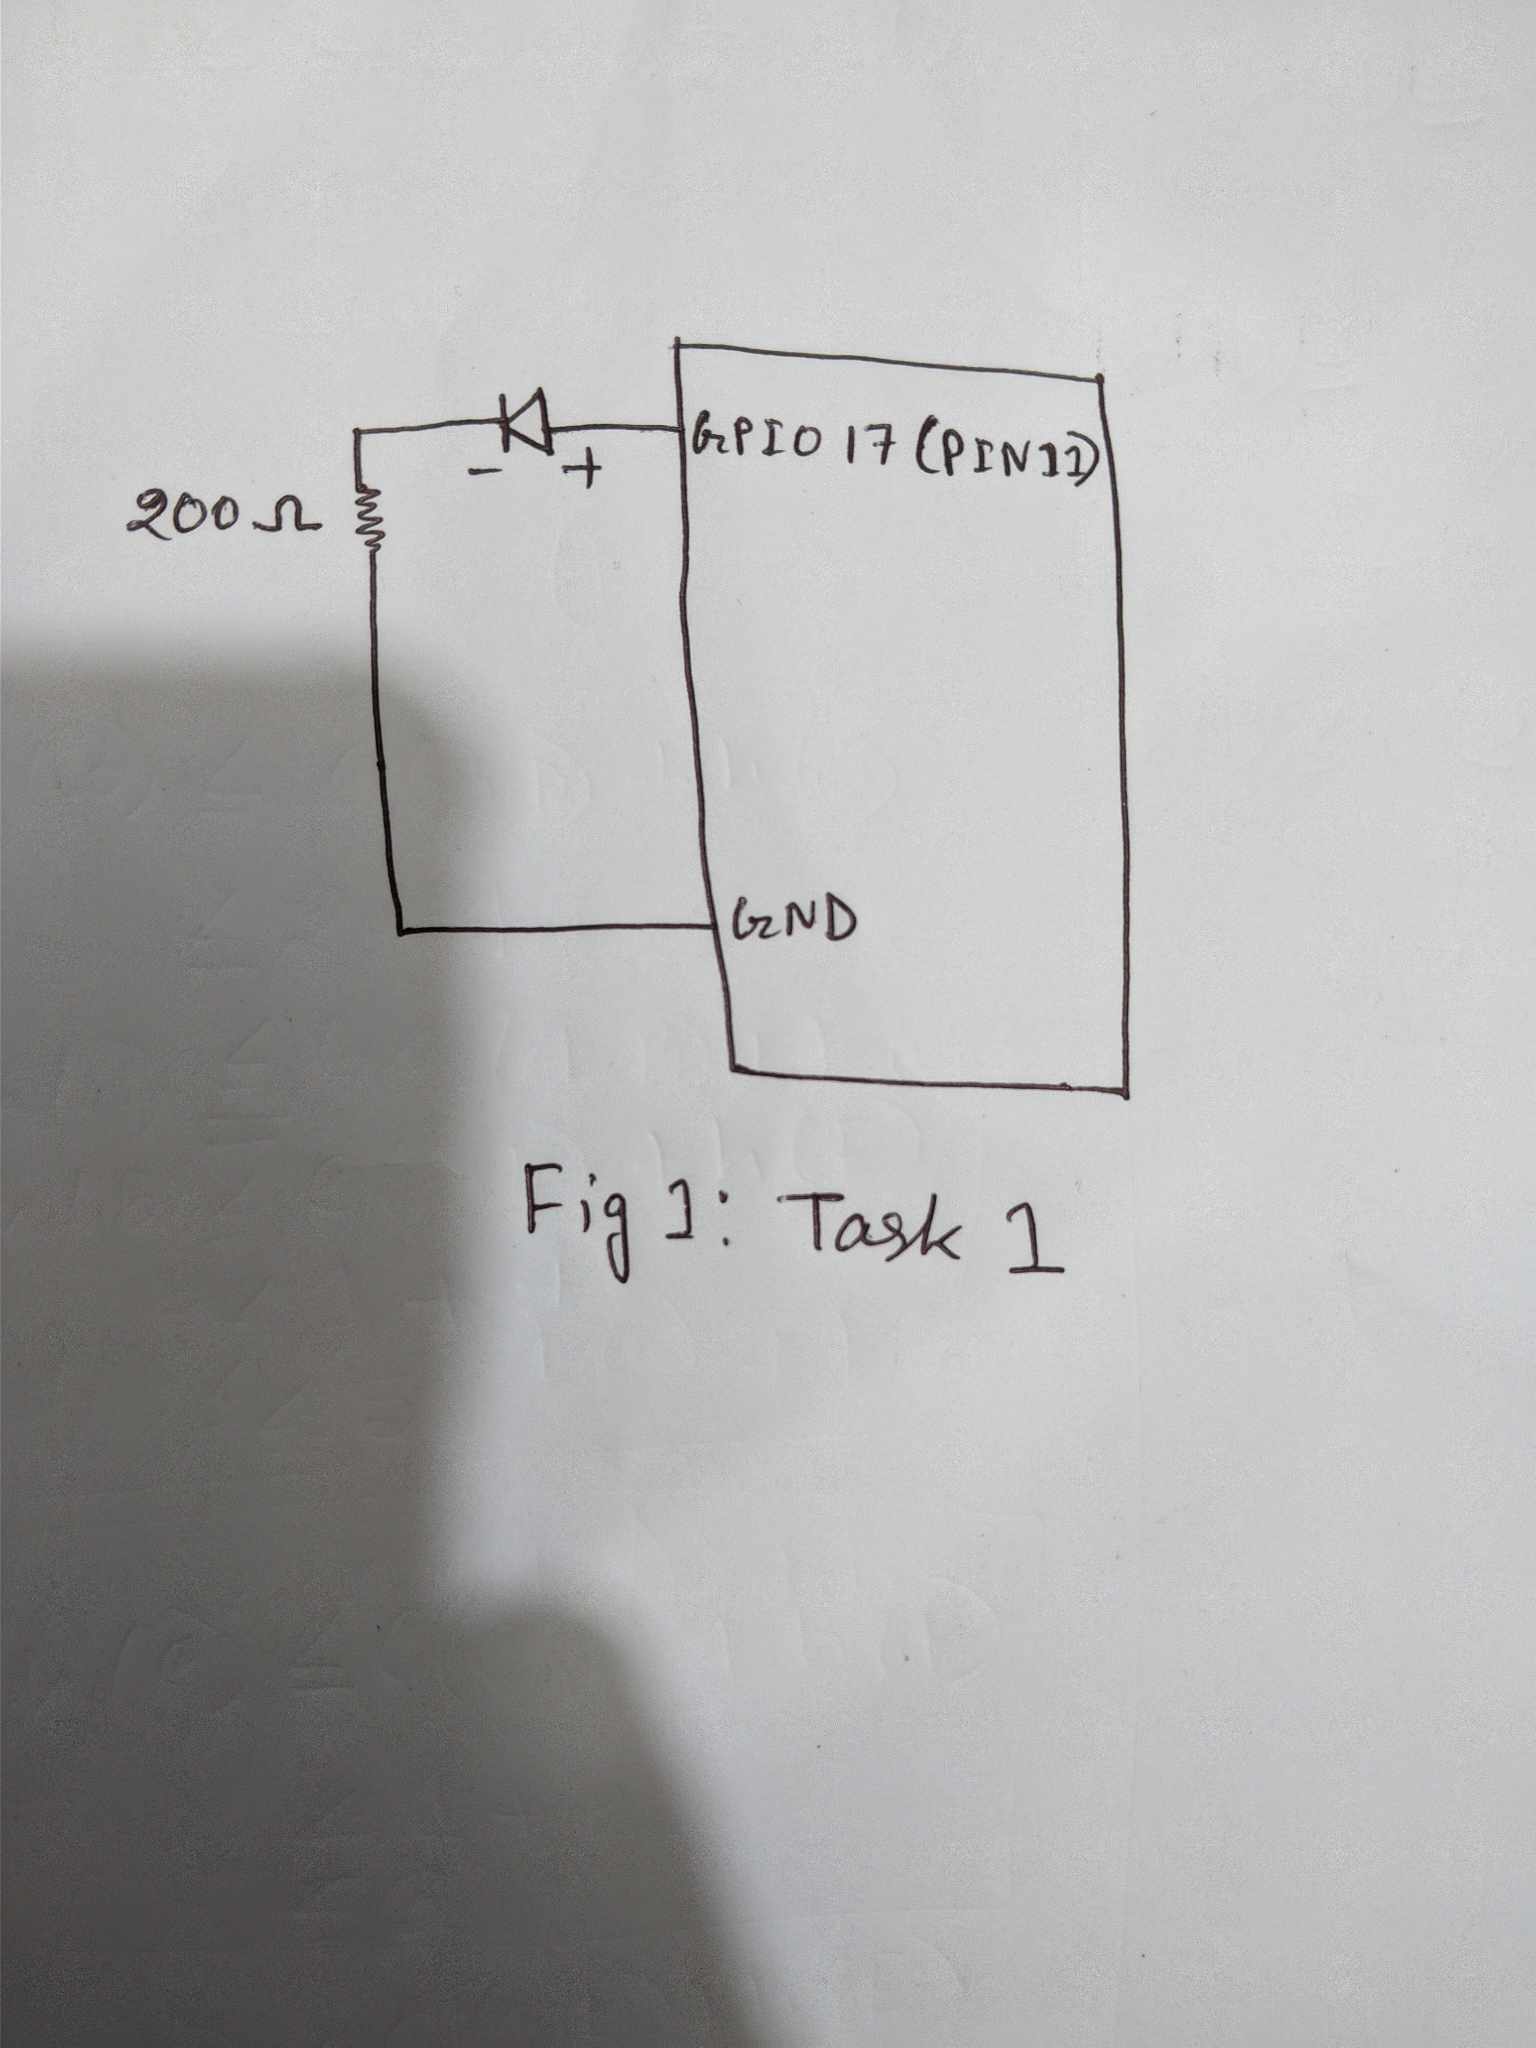 GPIO 17 (PIN11)
- +
200 Ω
GND
Fig 1: Task 1